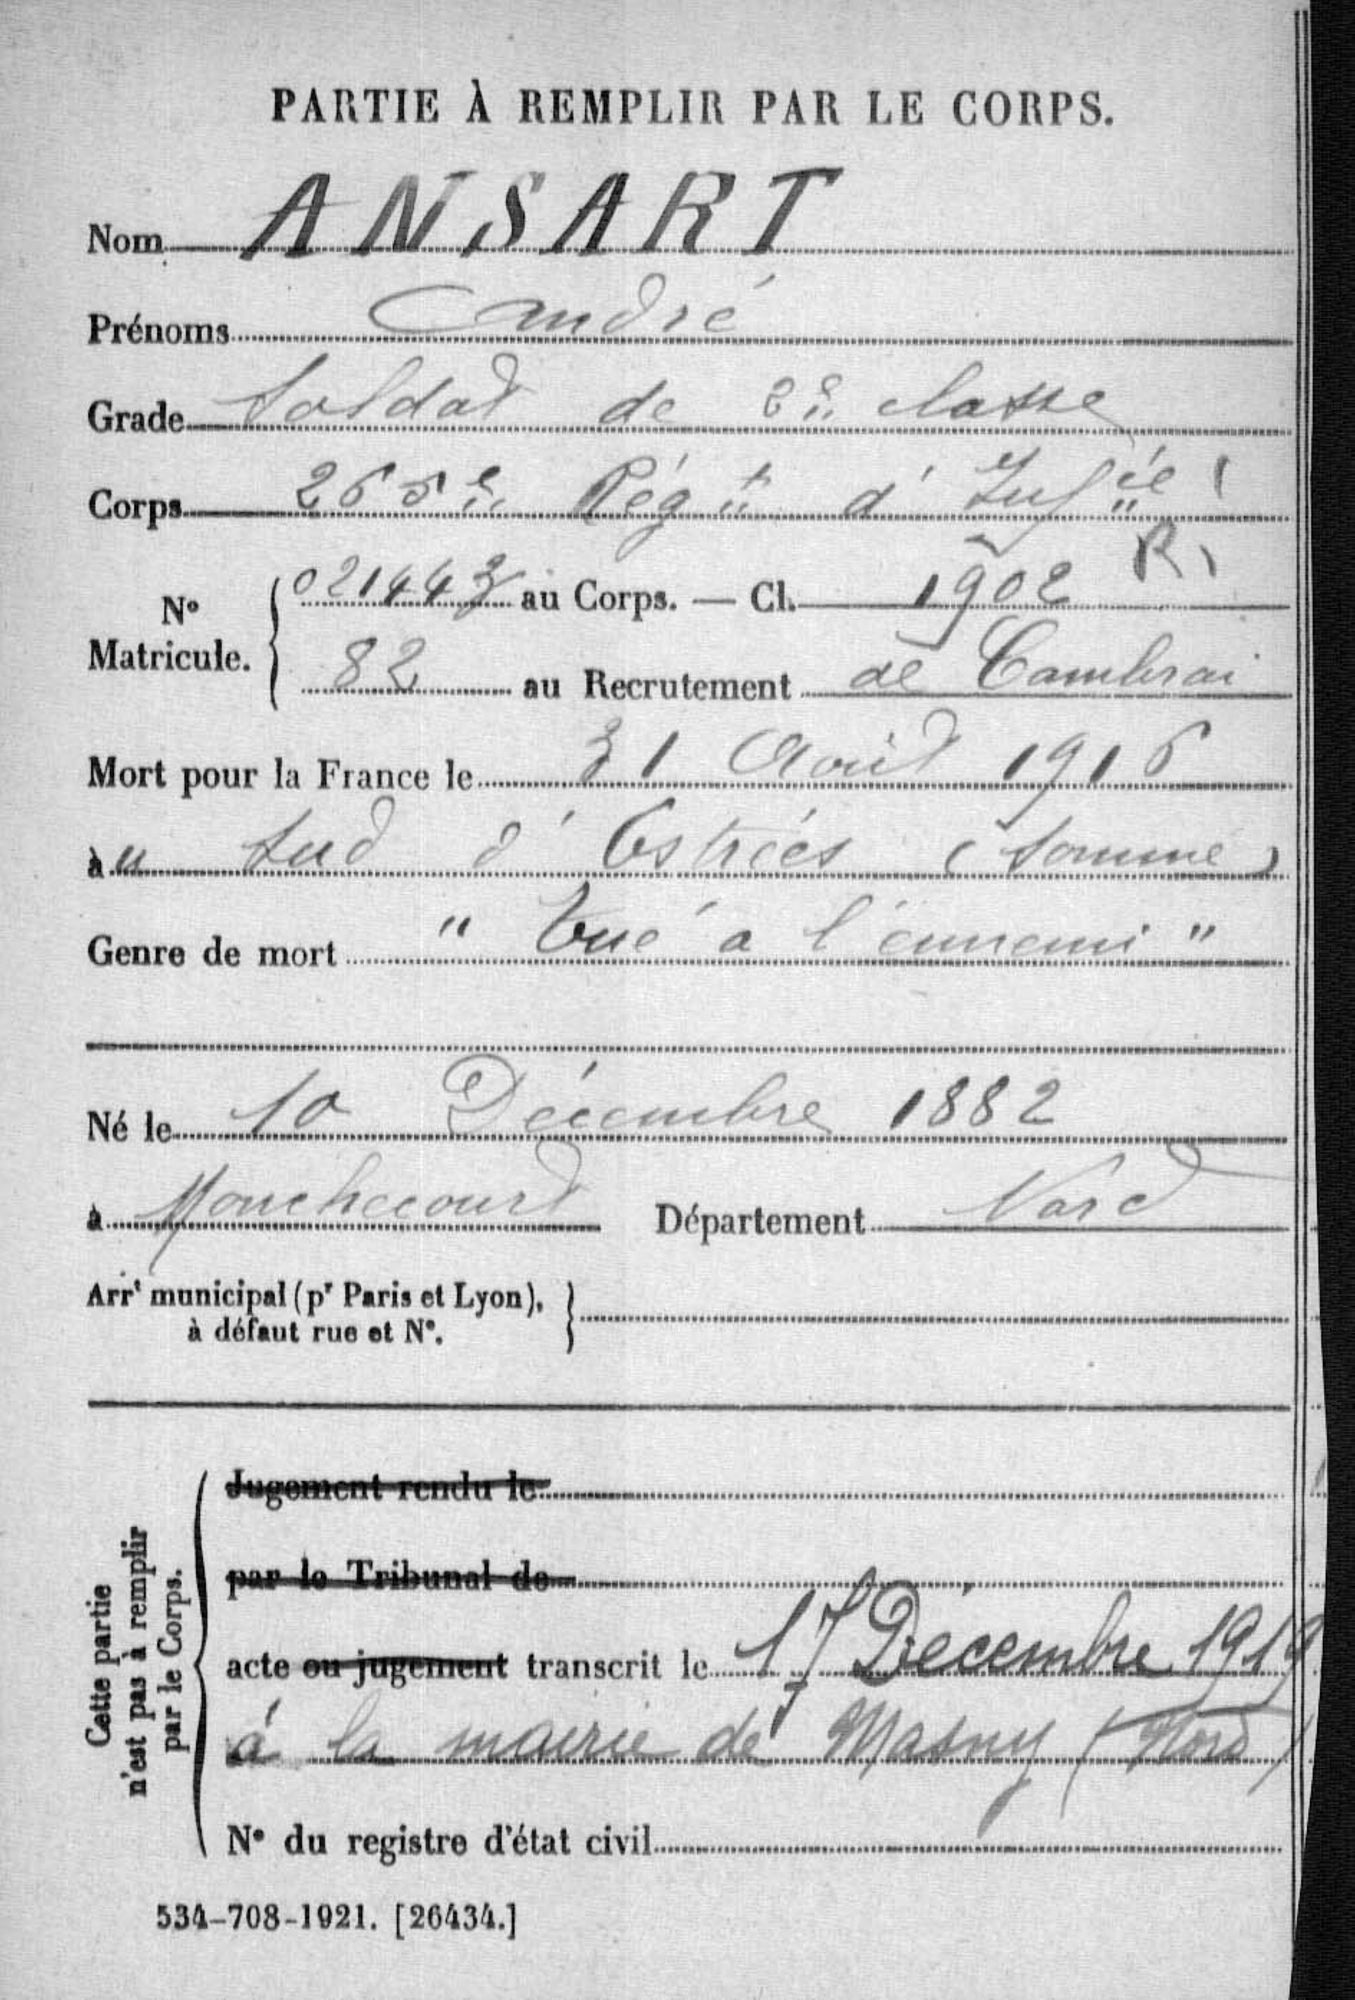 PARTIE À REMPLIR PAR LE CORPS.
Nom ANSART
Prénoms André
Grade Soldat de 2e classe
Corps 265e Régt d'Infie
R
021443 au Corps. — Cl. 1902
N° Matricule.
82 au Recrutement de Cambrai
Mort pour la France le 31 Août 1916
à u Sud d'Estrées (Somme)
Genre de mort "Tué à l'ennemi"
Né le 10 Décembre 1882
à Monchecourt Département Nord
Arrt municipal (pr Paris et Lyon),
à défaut rue et N°.
Cette partie
n'est pas à remplir
par le Corps.
Jugement rendu le
par le Tribunal de
acte ou jugement transcrit le 17 Décembre 1919
à la mairie de Masny (Nord)
N° du registre d'état civil
534-708-1921. [26434.]